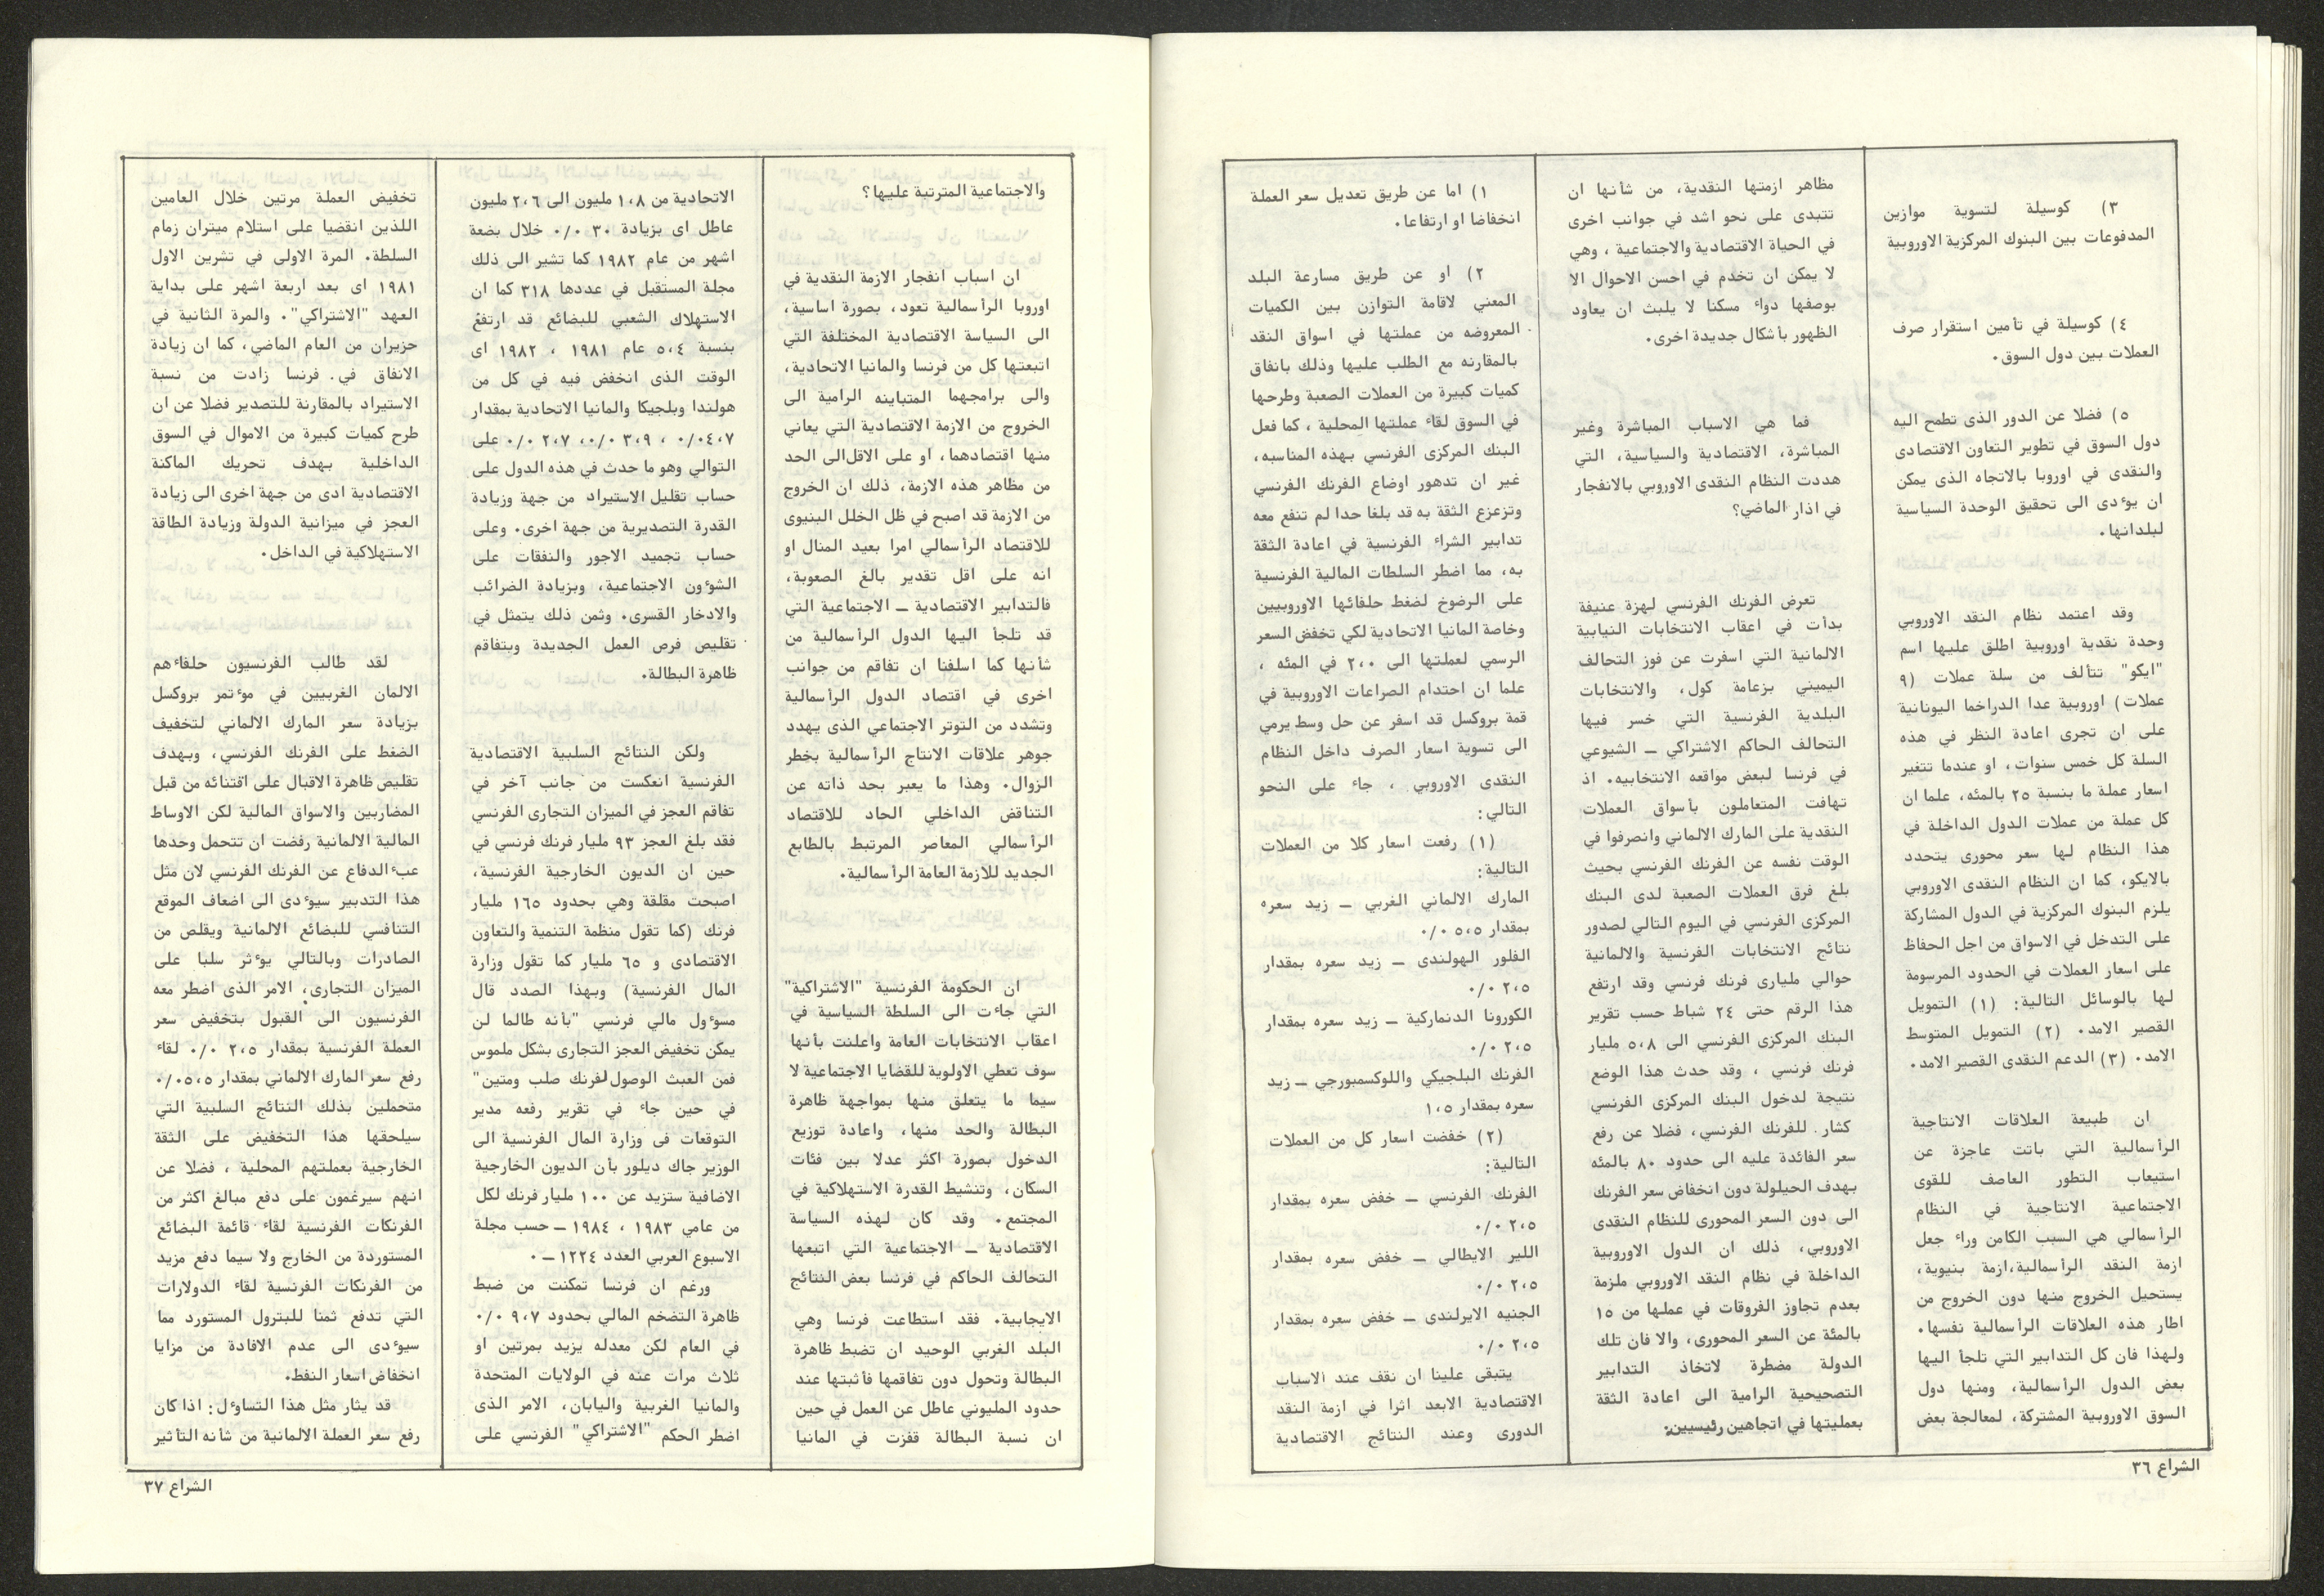 ٣) كوسيلة لتسوية موازين
المدفوعات بين البنوك المركزية الاوروبية
٤) كوسيلة في تأمين استقرار صرف
العملات بين دول السوق.
٥) فضلا عن الدور الذى تطمح اليه
دول السوق في تطوير التعاون الاقتصادى
والنقدى في اوروبا بالاتجاه الذى يمكن
ان يوٴدى الى تحقيق الوحدة السياسية
لبلدانها.
وقد اعتمد نظام النقد الاوروبي
وحدة نقدية اوروبية اطلق عليها اسم
"ايكو" تتألف من سلة عملات (٩
عملات) اوروبية عدا الدراخما اليونانية
على ان تجرى اعادة النظر في هذه
السلة كل خمس سنوات، او عندما تتغير
اسعار عملة ما بنسبة ٢٥ بالمئه، علما ان
كل عملة من عملات الدول الداخلة في
هذا النظام لها سعر محورى يتحدد
بالايكو، كما ان النظام النقدى الاوروبي
يلزم البنوك المركزية في الدول المشاركة
على التدخل في الاسواق من اجل الحفاظ
على اسعار العملات في الحدود المرسومة
لها بالوسائل التالية: (١) التمويل
القصير الامد. (٢) التمويل المتوسط
الامد. (٣) الدعم النقدى القصير الامد.
ان طبيعة العلاقات الانتاجية
الرأسمالية التي باتت عاجزة عن
استيعاب التطور العاصف للقوى
الاجتماعية الانتاجية في النظام
الرأسمالي هي السبب الكامن وراء جعل
ازمة النقد الرأسمالية،ازمة بنيوية،
يستحيل الخروج منها دون الخروج من
اطار هذه العلاقات الرأسمالية نفسها.
ولهذا فان كل التدابير التي تلجأ اليها
بعض الدول الرأسمالية، ومنها دول
السوق الاوروبية المشتركة، لمعالجة بعض
مظاهر ازمتها النقدية، من شأنها ان
تتبدى على نحو اشد في جوانب اخرى
في الحياة الاقتصادية والاجتماعية ، وهي
لا يمكن ان تخدم في احسن الاحوال الا
بوصفها دواء مسكنا لا يلبث ان يعاود
الظهور بأشكال جديدة اخرى.
فما هي الاسباب المباشرة وغير
المباشرة، الاقتصادية والسياسية، التي
هددت النظام النقدى الاوروبي بالانفجار
في اذار الماضي؟
تعرض الفرنك الفرنسي لهزة عنيفة
بدأت في اعقاب الانتخابات النيابية
الالمانية التي اسفرت عن فوز التحالف
اليميني بزعامة كول، والانتخابات
البلدية الفرنسية التي خسر فيها
التحالف الحاكم الاشتراكي ــ الشيوعي
في فرنسا لبعض مواقعه الانتخابيه. اذ
تهافت المتعاملون بأسواق العملات
النقدية على المارك الالماني وانصرفوا في
الوقت نفسه عن الفرنك الفرنسي بحيث
بلغ فرق العملات الصعبة لدى البنك
المركزى الفرنسي في اليوم التالي لصدور
نتائج الانتخابات الفرنسية والالمانية
حوالي مليارى فرنك فرنسي وقد ارتفع
هذا الرقم حتى ٢٤ شباط حسب تقرير
البنك المركزى الفرنسي الى ٥،٨ مليار
فرنك فرنسي ، وقد حدث هذا الوضع
نتيجة لدخول البنك المركزى الفرنسي
كشار للفرنك الفرنسي، فضلا عن رفع
سعر الفائدة عليه الى حدود ٨٠ بالمئه
بهدف الحيلولة دون انخفاض سعر الفرنك
الى دون السعر المحورى للنظام النقدى
الاوروبي، ذلك ان الدول الاوروبية
الداخلة في نظام النقد الاوروبي ملزمة
بعدم تجاوز الفروقات في عملها من ١٥
بالمئة عن السعر المحورى، والا فان تلك
الدولة مضطرة لاتخاذ التدابير
التصحيحية الرامية الى اعادة الثقة
بعمليتها في اتجاهين رئيسيين:
١) اما عن طريق تعديل سعر العملة
انخفاضا او ارتفاعا.
٢) او عن طريق مسارعة البلد
المعني لاقامة التوازن بين الكميات
المعروضه من عملتها في اسواق النقد
بالمقارنه مع الطلب عليها وذلك بانفاق
كميات كبيرة من العملات الصعبة وطرحها
في السوق لقاء عملتها المحلية ، كما فعل
البنك المركزى الفرنسي بهذه المناسبه،
غير ان تدهور اوضاع الفرنك الفرنسي
وتزعزع الثقة به قد بلغا حدا لم تنفع معه
تدابير الشراء الفرنسية في اعادة الثقة
به، مما اضطر السلطات المالية الفرنسية
على الرضوخ لضغط حلفائها الاوروبيين
وخاصة المانيا الاتحادية لكي تخفض السعر
الرسمي لعملتها الى ٢،٠٠ في المئه ،
علما ان احتدام الصراعات الاوروبية في
قمة بروكسل قد اسفر عن حل وسط يرمي
الى تسوية اسعار الصرف داخل النظام
النقدى الاوروبي ، جاء على النحو
التالي:
(١) رفعت اسعار كلا من العملات
التالية:
المارك الالماني الغربي ــ زيد سعره
بمقدار ٥،٥ ٠/٠
الفلور الهولندى ــ زيد سعره بمقدار
٢،٥ ٠/٠
الكورونا الدنماركية ــ زيد سعره بمقدار
٢،٥ ٠/٠
الفرنك البلجيكي واللوكسمبورجي ــ زيد
سعره بمقدار ١،٥
(٢) خفضت اسعار كل من العملات
التالية:
الفرنك الفرنسي ــ خفض سعره بمقدار
٢،٥ ٠/٠
اللير الايطالي ــ خفض سعره بمقدار
٢،٥ ٠/٠
الجنيه الايرلندى ــ خفض سعره بمقدار
٢،٥ ٠/٠
يتبقى علينا ان نقف عند الاسباب
الاقتصادية الابعد اثرا في ازمة النقد
الدورى وعند النتائج الاقتصادية
الشراع ٣٦
والاجتماعية المترتبة عليها؟
ان اسباب انفجار الازمة النقدية في
اوروبا الرأسمالية تعود، بصورة اساسية،
الى السياسة الاقتصادية المختلفة التي
اتبعتها كل من فرنسا والمانيا الاتحادية،
والى برامجهما المتباينه الرامية الى
الخروج من الازمة الاقتصادية التي يعاني
منها اقتصادهما، او على الاقل الى الحد
من مظاهر هذه الازمة، ذلك ان الخروج
من الازمة قد اصبح في ظل الخلل البنيوى
للاقتصاد الرأسمالي امرا بعيد المنال او
انه على اقل تقدير بالغ الصعوبة،
فالتدابير الاقتصادية ــ الاجتماعية التي
قد تلجأ اليها الدول الرأسمالية من
شأنها كما اسلفنا ان تفاقم من جوانب
اخرى في اقتصاد الدول الرأسمالية
وتشدد من التوتر الاجتماعي الذى يهدد
جوهر علاقات الانتاج الرأسمالية بخطر
الزوال. وهذا ما يعبر بحد ذاته عن
التناقض الداخلي الحاد للاقتصاد
الرأسمالي المعاصر المرتبط بالطابع
الجديد للازمة العامة الرأسمالية.
ان الحكومة الفرنسية "الاشتراكية"
التي جاءت الى السلطة السياسية في
اعقاب الانتخابات العامة واعلنت بأنها
سوف تعطي الاولوية للقضايا الاجتماعية لا
سيما ما يتعلق منها بمواجهة ظاهرة
البطالة والحد منها، واعادة توزيع
الدخول بصورة اكثر عدلا بين فئات
السكان، وتنشيط القدرة الاستهلاكية في
المجتمع. وقد كان لهذه السياسة
الاقتصادية ــ الاجتماعية التي اتبعها
التحالف الحاكم في فرنسا بعض النتائج
الايجابية. فقد استطاعت فرنسا وهي
البلد الغربي الوحيد ان تضبط ظاهرة
البطالة وتحول دون تفاقمها فأثبتها عند
حدود المليوني عاطل عن العمل في حين
ان نسبة البطالة قفزت في المانيا
الاتحادية من ١،٨ مليون الى ٢،٦ مليون
عاطل اى بزيادة ٣٠ ٠/٠ خلال بضعة
اشهر من عام ١٩٨٢ كما تشير الى ذلك
مجلة المستقبل في عددها ٣١٨ كما ان
الاستهلاك الشعبي للبضائع قد ارتفع
بنسبة ٥،٤ عام ١٩٨١ ، ١٩٨٢ اى
الوقت الذى انخفض فيه في كل من
هولندا وبلجيكا والمانيا الاتحادية بمقدار
٤،٧ ٠/٠ ، ٣،٩ ٠/٠، ٢،٧ ٠/٠ على
التوالي وهو ما حدث في هذه الدول على
حساب تقليل الاستيراد من جهة وزيادة
القدرة التصديرية من جهة اخرى. وعلى
حساب تجميد الاجور والنفقات على
الشوٴون الاجتماعية، وبزيادة الضرائب
والادخار القسرى. وثمن ذلك يتمثل في
تقليص فرص العمل الجديدة وبتفاقم
ظاهرة البطالة.
ولكن النتائج السلبية الاقتصادية
الفرنسية انعكست من جانب آخر في
تفاقم العجز في الميزان التجارى الفرنسي
فقد بلغ العجز ٩٣ مليار فرنك فرنسي في
حين ان الديون الخارجية الفرنسية،
اصبحت مقلقة وهي بحدود ١٦٥ مليار
فرنك (كما تقول منظمة التنمية والتعاون
الاقتصادى و ٦٥ مليار كما تقول وزارة
المال الفرنسية) وبهذا الصدد قال
مسوٴول مالي فرنسي "بأنه طالما لن
يمكن تخفيض العجز التجارى بشكل ملموس
فمن العبث الوصول لفرنك صلب ومتين"
في حين جاء في تقرير رفعه مدير
التوقعات فى وزارة المال الفرنسية الى
الوزير جاك ديلور بأن الديون الخارجية
الاضافية ستزيد عن ١٠٠ مليار فرنك لكل
من عامي ١٩٨٣ ، ١٩٨٤ ــ حسب مجلة
الاسبوع العربي العدد ١٢٢٤ ــ .
ورغم ان فرنسا تمكنت من ضبط
ظاهرة التضخم المالي بحدود ٩،٧ ٠/٠
في العام لكن معدله يزيد بمرتين او
ثلاث مرات عنه في الولايات المتحدة
والمانيا الغربية واليابان، الامر الذى
اضطر الحكم "الاشتراكي" الفرنسي على
تخفيض العملة مرتين خلال العامين
اللذين انقضيا على استلام ميتران زمام
السلطة. المرة الاولى في تشرين الاول
١٩٨١ اى بعد اربعة اشهر على بداية
العهد "الاشتراكي". والمرة الثانية في
حزيران من العام الماضي، كما ان زيادة
الانفاق في فرنسا زادت من نسبة
الاستيراد بالمقارنة للتصدير فضلا عن ان
طرح كميات كبيرة من الاموال في السوق
الداخلية بهدف تحريك الماكنة
الاقتصادية ادى من جهة اخرى الى زيادة
العجز في ميزانية الدولة وزيادة الطاقة
الاستهلاكية في الداخل.
لقد طالب الفرنسيون حلفاءهم
الالمان الغربيين في موٴتمر بروكسل
بزيادة سعر المارك الالماني لتخفيف
الضغط على الفرنك الفرنسي، وبهدف
تقليص ظاهرة الاقبال على اقتنائه من قبل
المضاربين والاسواق المالية لكن الاوساط
المالية الالمانية رفضت ان تتحمل وحدها
عبء الدفاع عن الفرنك الفرنسي لان مثل
هذا التدبير سيوٴدى الى اضعاف الموقع
التنافسي للبضائع الالمانية ويقلص من
الصادرات وبالتالي يوٴثر سلبا على
الميزان التجارى، الامر الذى اضطر معه
الفرنسيون الى القبول بتخفيض سعر
العملة الفرنسية بمقدار ٢،٥ ٠/٠ لقاء
رفع سعر المارك الالماني بمقدار ٥،٥ ٠/٠
متحملين بذلك النتائج السلبية التي
سيلحقها هذا التخفيض على الثقة
الخارجية بعملتهم المحلية ، فضلا عن
انهم سيرغمون على دفع مبالغ اكثر من
الفرنكات الفرنسية لقاء قائمة البضائع
المستوردة من الخارج ولا سيما دفع مزيد
من الفرنكات الفرنسية لقاء الدولارات
التي تدفع ثمنا للبترول المستورد مما
سيوٴدى الى عدم الافادة من مزايا
انخفاض اسعار النفط.
قد يثار مثل هذا التساوٴل: اذا كان
رفع سعر العملة الالمانية من شأنه التأثير
الشراع ٣٧